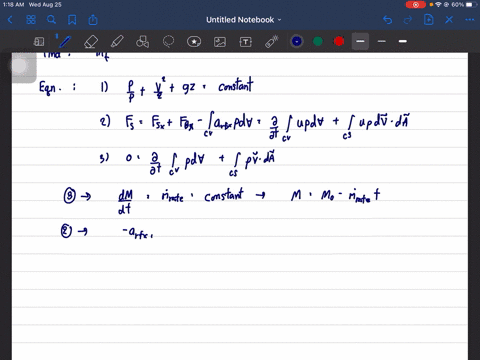 1:18 AM Wed Aug 25
60%
Untitled Notebook
Find : Mf
Eqn. : 1) P/ρ + V²/2 + gz = constant
2) Fs = Fsx + FBx - ∫cv arfx ρd∀ = ∂/∂t ∫cv uρd∀ + ∫cs uρdV⃗ · dA⃗
3) 0 = ∂/∂t ∫cv ρd∀ + ∫cs ρV⃗ · dA⃗
③ → dM/dt = ṁrate = constant → M = M₀ - ṁrate t
② → -arfx